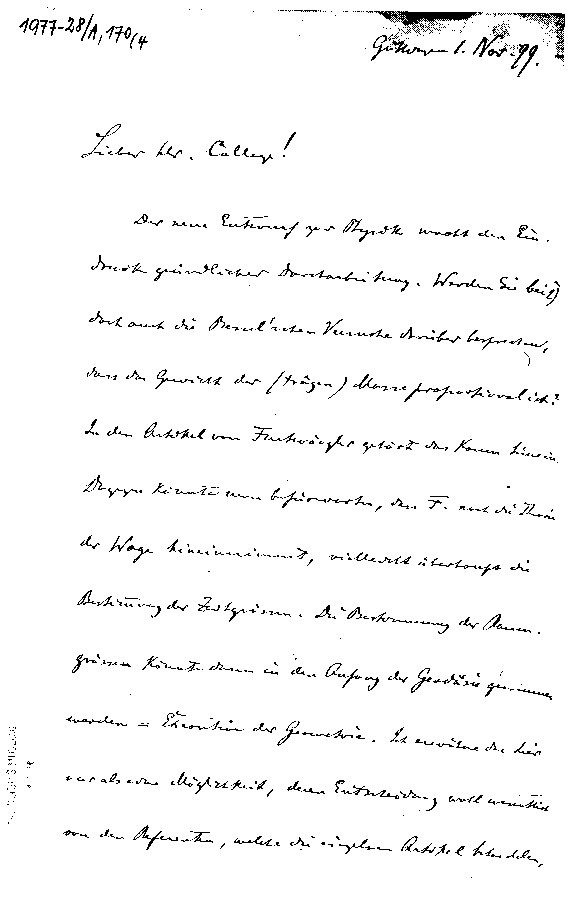 1977-28/A, 170/4
Göttingen 1. Nov. 99.
Lieber Hr. College!
Der neue Entwurf zur Physik macht den Ein-
druck gründlicher Durcharbeitung. Werden Sie bei 1)
doch auch die Bessel'schen Versuche darüber besprechen,
dass das Gewicht der (trägen) Masse proportional ist?
In den Artikel von Furtwängler gehört das kaum hinein.
Dagegen könnte man befürworten, dass F. noch die Theorie
der Wage hineinnimmt, vielleicht überhaupt die
Bestimmung der Zeitgrössen. Die Bestimmung der Raum-
grössen könnte dann in den Anfang der Geodäsie genommen
werden = Execution der Geometrie. Ich erwähne das hier
nur als eine Möglichkeit, deren Entscheidung wohl wesentlich
von den Referenten, welche die einzelnen Artikel behandeln,